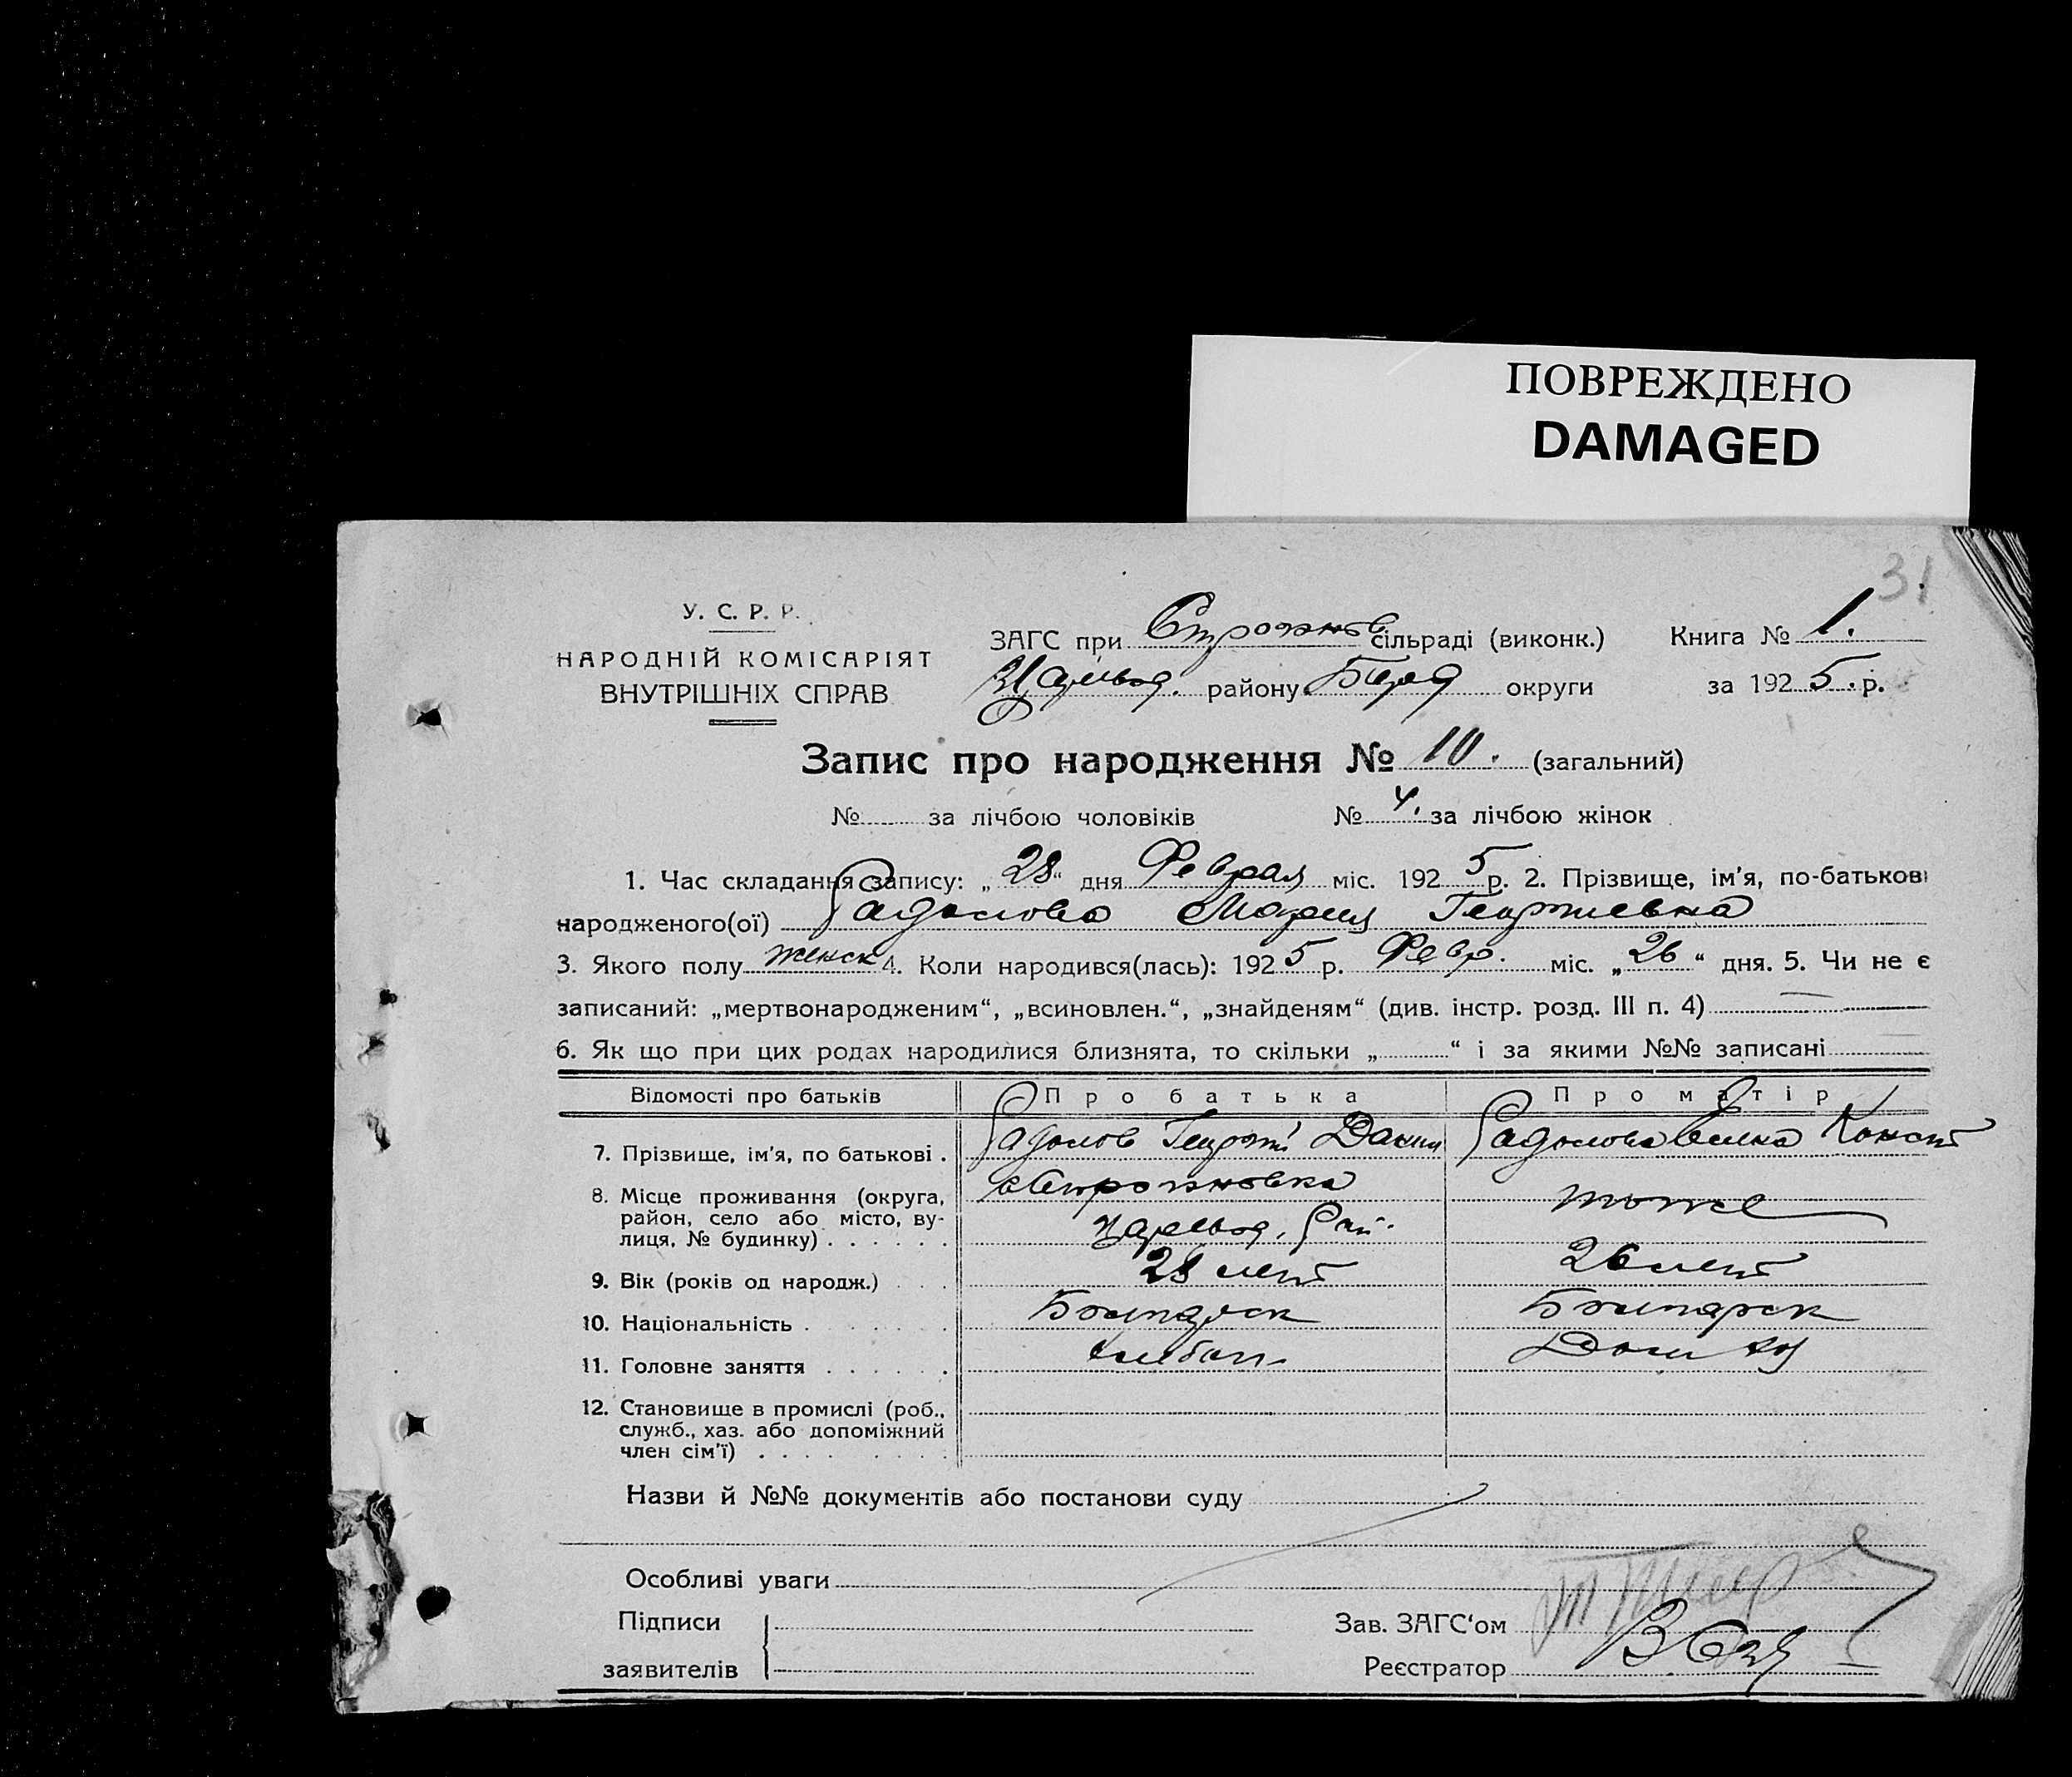 ПОВРЕЖДЕНО
DAMAGED
31
У. С. Р. Р.
НАРОДНІЙ КОМІСАРІЯТ
ВНУТРІШНІХ СПРАВ
ЗАГС при Строгнов сільраді (виконк.) Книга № 1.
Царевод. району Берд округи за 1925. р.
Запис про народження № 10. (загальний)
№ за лічбою чоловіків № 4. за лічбою жінок
1. Час складання запису: „28“ дня Февраля міс. 1925 р. 2. Прізвище, ім'я, по-батькові
народженого(ої) Радолова Мария Георгиевна
3. Якого полу женск 4. Коли народився(лась): 1925 р. Февр. міс. „26“ дня. 5. Чи не є
записаний: „мертвонародженим“, „всиновлен.“, „знайденям“ (див. інстр. розд. III п. 4)
6. Як що при цих родах народилися близнята, то скільки „ “ і за якими №№ записані
Відомості про батьків Про батька Про матір
7. Прізвище, ім'я, по батькові . Радолов Георгий Данил Радолова Елена Конст
8. Місце проживання (округа, район, село або місто, вулиця, № будинку) . . . . . . Царевод. Рай. тоже
9. Вік (років од народж.) 28 лет 26 лет
10. Національність . Болгарск Болгарск
11. Головне заняття . . . . . . Хлебоп. Дом хоз
12. Становище в промислі (роб., служб., хаз. або допоміжний член сім'ї) . . . .
Назви й №№ документів або постанови суду
Особливі уваги
Підписи
заявителів
Зав. ЗАГС'ом
Реєстратор